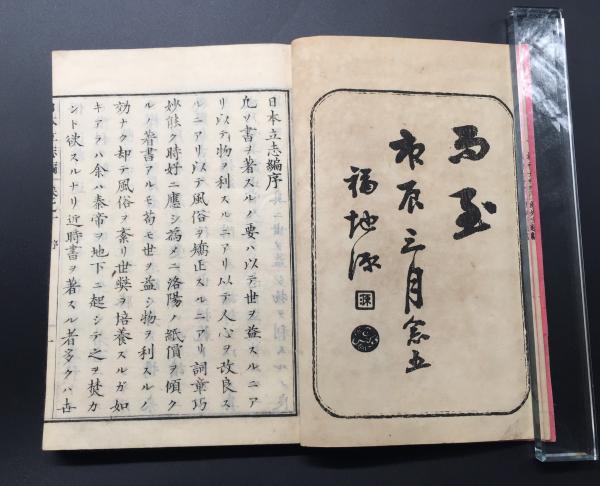 玉
庚辰三月念五
福地源
日本立志編序
凢ソ書ヲ著スルノ要ハ以テ世ヲ益スルニア
リ以テ物ヲ利スルニアリ以テ人心ヲ改良ス
ルニアリ以テ風俗ヲ矯正スルニアリ詞章巧
妙能ク時好ニ應シ為メニ洛陽ノ紙價ヲ傾ク
ルノ著書アルモ苟モ世ヲ益シ物ヲ利スルノ
効ナク却テ風俗ヲ紊リ世弊ヲ培養スルガ如
キアラハ余ハ秦帝ヲ地下ニ起シテ之ヲ焚カ
ント欲スルナリ近時書ヲ著スル者多クハ古
本立志編 卷之一 序 一